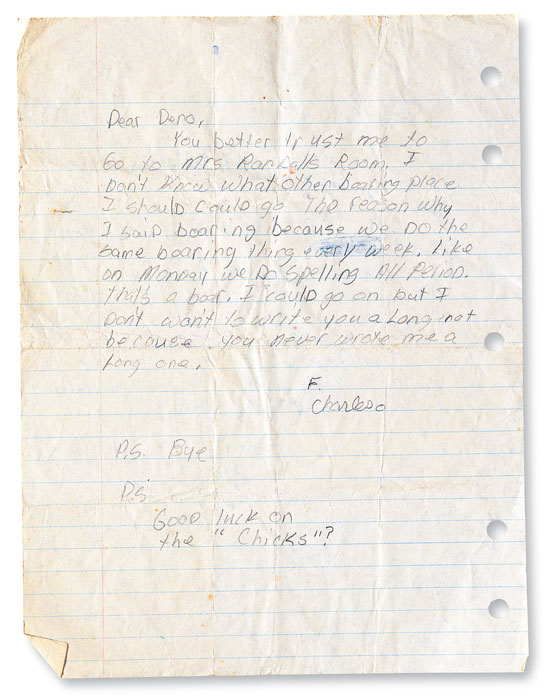 Dear Dero,
You better trust me to
Go to Mrs Randalls Room. I
Don't know what other boaring place
I should could go The reason why
I said boaring because we do the
same boaring thing every week. Like
on Monday we Do Spelling All Period.
thats a boar. I could go on but I
Dont want to write you a long not
because you never wrote me a
long one.
F.
Charles
P.S. Bye
P.S.
Good luck on
the "Chicks"?